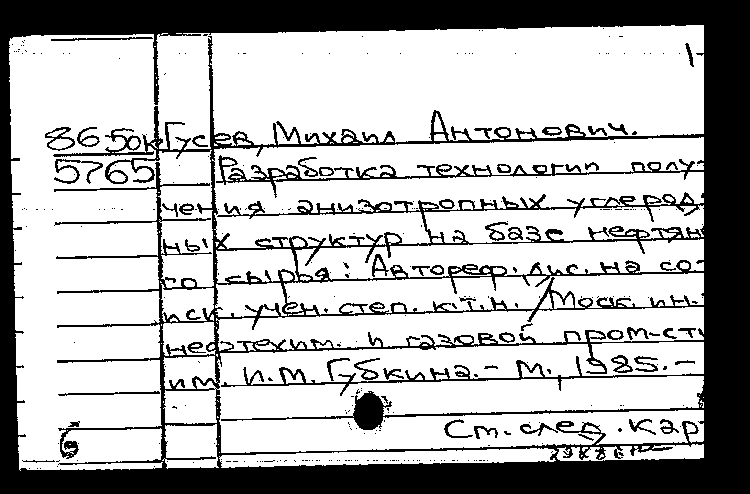 1-
86-50к Гусев, Михаил Антонович.
5765 Разработка технологии полу-
чения анизотропных углерод-
ных структур на базе нефтян
го сырья: Автореф. дис. на со-
иск. учен. степ. к.т.н. / Моск. ин-
нефтехим. и газовой пром-сти
им. И.М. Губкина. - М., 1985. -
См. след. кар
6